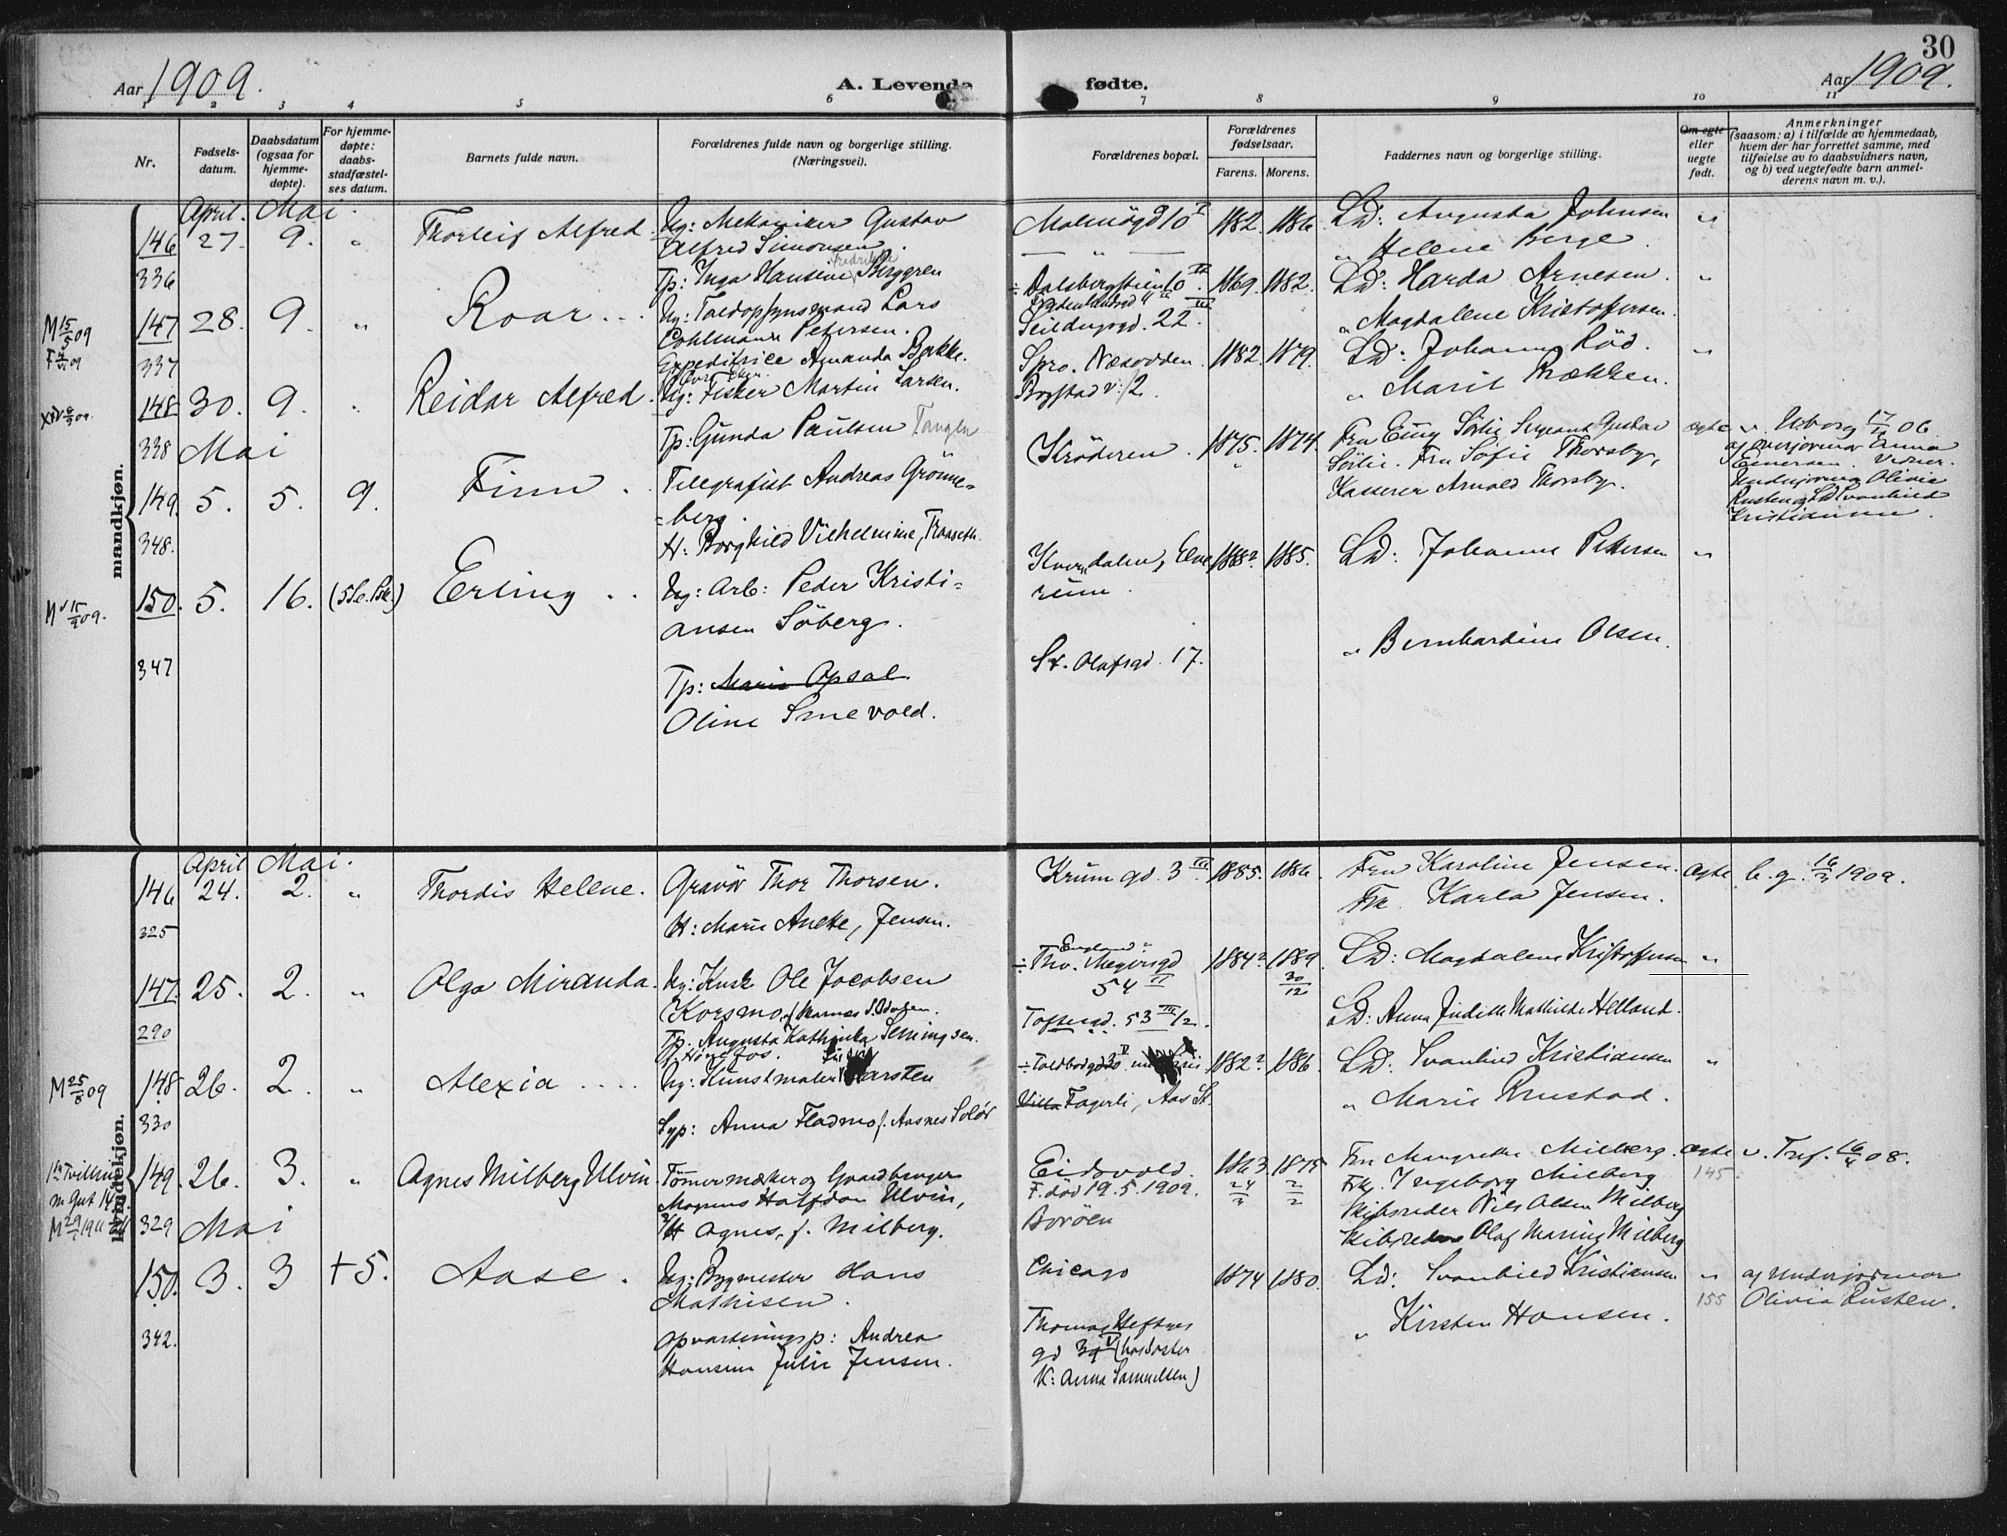 30
Aar 1909.
A. Levende fødte.
Aar 1909.
1 2 3 4 5 6 7 8 9 10 11
Nr.
Fødsels-datum.
Daabsdatum (ogsaa for hjemme-døpte).
For hjemme-døpte: daabs-stadfæstel-ses datum.
Barnets fulde navn.
Forældrenes fulde navn og borgerlige stilling.
(Næringsvei).
Forældrenes bopæl.
Forældrenes fødselsaar.
Farens. Morens.
Faddernes navn og borgerlige stilling.
Om egte eller uegte født.
Anmerkninger
(saasom: a) i tilfælde av hjemmedaab,
hvem der har forrettet samme, med
tilføielse av to daabsvidners navn,
og b) ved uegtefødte barn anmel-
derens navn m. v.).
mandkjøn.
April. Mai.
146 27. 9. " Thorleif Alfred. Ug: Mekaniker Gustav
Alfred Simonsen.
Malmøgd 10 I 1882. 1886. Ld: Augusta Johnsen "
" Helene Berge.
336
Tp: Inga Hansine Fredrikke Berggren
÷ Dalsbergstien 10 III
M 15/5 09
147 28. 9. " Roar . . Ug: Toldopsynsmand Lars
Petersen.
Seildugsgd. 22 III
1869. 1882. Ld: Harda Arnesen. "
" Magdalene Kristoffersen.
337
Expeditrice Amanda Bakke.
148 30. 9. " Reidar Alfred. Ug: Fisker Martin Larsen.
Spro. Næsodden.
Bogstad v. 12.
1882. 1879. Ld: Johanne Röd. "
" Marit Brækken.
338
Tp: Gunda Paulsen Tangen
Mai
149. 5. 5. 9. Finn . Telegrafist Andreas Grönne=
=berg.
Kröderen. 1875. 1874. Fru Emy Sörlie Sergeant Gustav
Sörlie. Fru Sofie Thorsby,
Kasserer Arnold Thorsby.
egte v. 17/ 06
af overjormor Emma
Einersen. Vidner.
Underjormor Olivia
Rusten og Ld Svanhild
Kristiansen.
348.
H: Borghild Vilhelmine, Traaseth.
150. 5. 16. Erling . . Ug: Arb: Peder Kristi=
ansen Söberg.
Kverndalen, Elve
rum.
1882? 1885. Ld: Johanne Petersen "
" Bernhardine Olsen.
347
Tp: Marie Opsal
Oline Snevold.
St. Olafsgd. 17.
kvindekjøn.
April Mai.
146 24. 2. " Thordis Helene. Gravör Thor Thorsen.
H: Marie Anette, Jensen.
Krumgd. 3 III 1885. 1886. Fru Karoline Jensen. egte b.g. 16/ 1909.
Frk. Karla Jensen.
325
147. 25. 2. " Olga Miranda. Ug: Kusk Ole Jacobsen
Korsmo af Navnes S. Odalen.
England "
÷ Thv. Meyersgd
54 II
1884? 1889. 30/12 Ld: Magdalene Kristoffersen "
Ld: Anna Judith Mathilde Helland.
290
Tp. Augusta Kathinka Henningsen.
af Hönefos.
Toftesgd. 53 III/2.
M 25/8 09
148 26. 2. " Alexia . . . . Ug: Kunstmaler Karsten
1882? 1886. Ld: Svanhild Kristiansen "
" Marie Rustad.
330
Syp: Anna Fladmo f. Aasnes Solör
Villa Fagerli, Aas St.
149. 26. 3. " Agnes Milberg Ulvin. Tömmermæker og Gaardbruger
Magnus Halfdan Ulvin,
H Agnes, f. Milberg.
Eidsvold.
F. död 19.5.1909.
Boröen
1863 24/ 1875 2/2 Fru Margrethe Milberg. egte v. Tref. 08.
Frk. Ingeborg Milberg. 145
Skibsreder Nils Olsen Milberg
Skibsreder Olaf Marius Milberg
329 Mai
150. 3. 3 +5. Aase . Ug: Bygmester Hans
Mathisen.
Chicago 1874 1880. Ld: Svanhild Kristiansen " af Underjormor
155 Olivia Rusten.
" Kirsten Hansen.
342.
Opvartningsp: Andrea
Hansine Julie Jensen.
Thomas Heftyes
gd 34 V (hos söster
K: Anna Samuelsen)